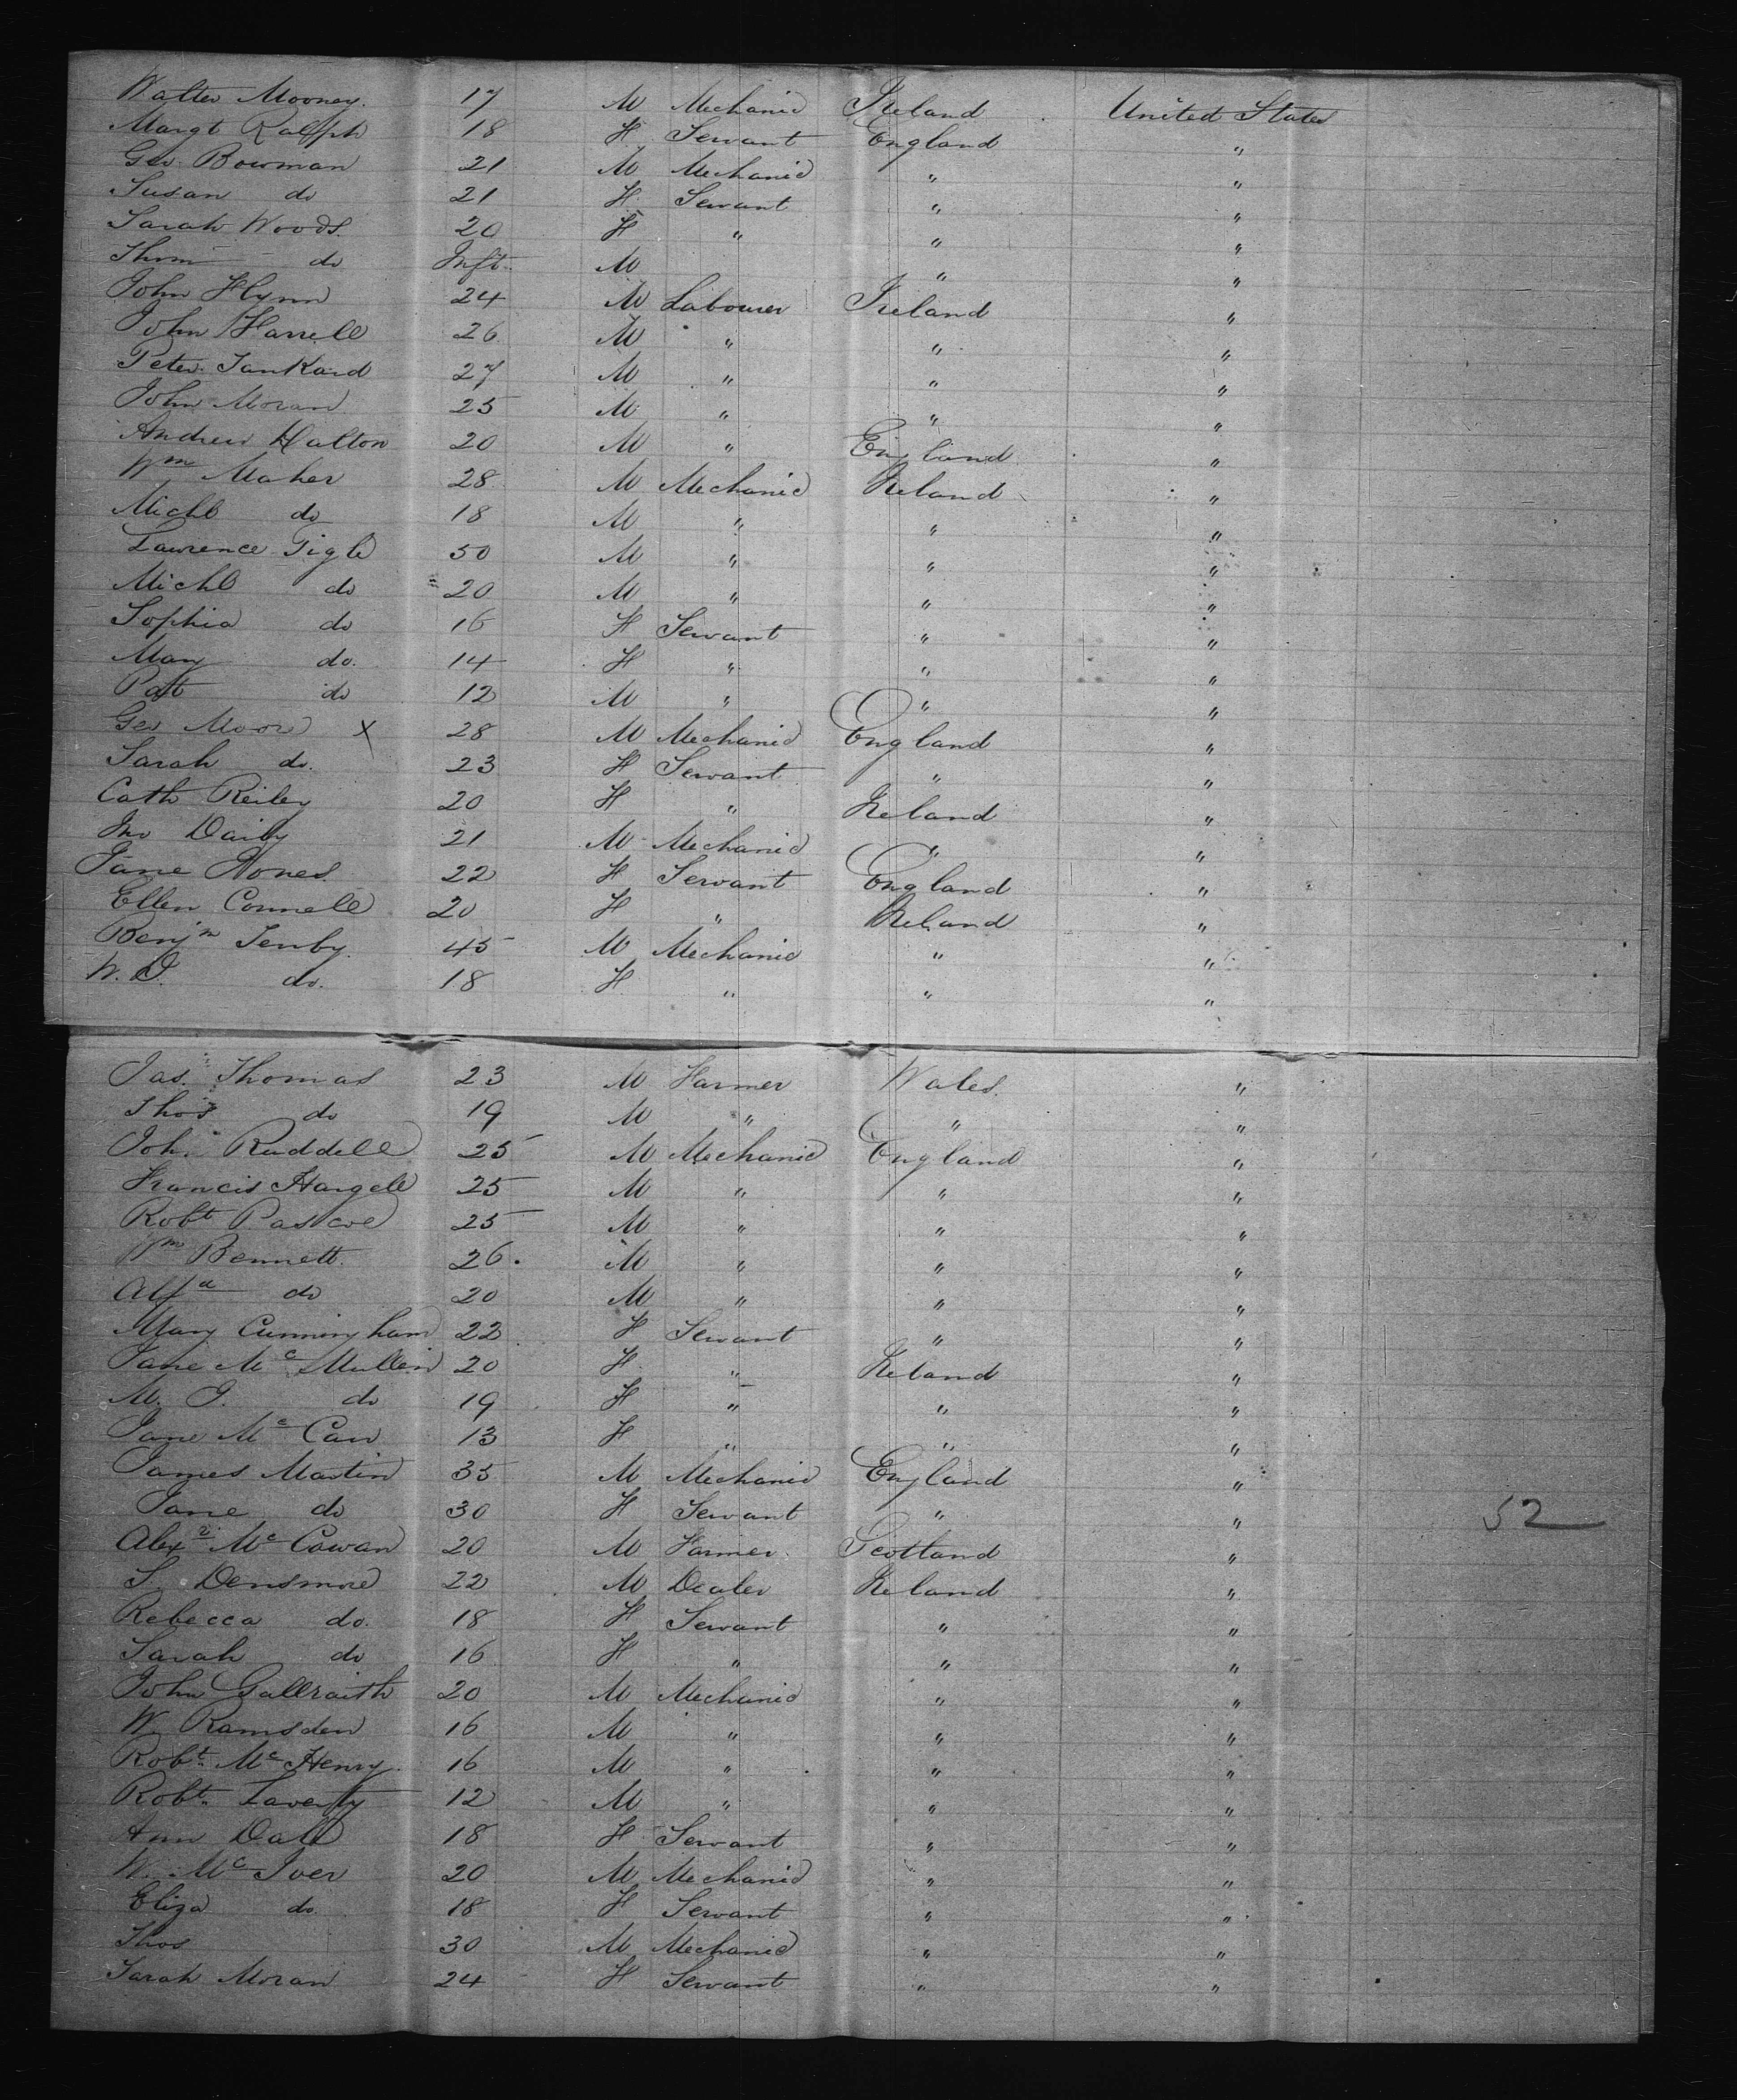 Walter Mooney. 17 M Mechanic Ireland United States
Margt Ralph 18 F Servant England "
Geo Bowman 21 M Mechanic " "
Susan do 21 F Servant " "
Sarah Woods. 20 F " " "
Thom do Inft. M " "
John Flynn 24 M Labourer Ireland "
John Farrell 26 M " " "
Peter Tankard 27 M " " "
John Moran 25 M " " "
Andrew Halton 20 M " England "
Wm Maher 28 M Mechanic Ireland "
Michl do 18 M " " "
Lawrence Tigh 50 M " " "
Michl do 20 M " " "
Sophia do 16 F Servant " "
Mary do. 14 F " " "
Pat do 12 M " " "
Geo Moore X 28 M Mechanic England "
Sarah do. 23 F Servant " "
Cath Reiley 20 F " Ireland "
Jno Daily 21 M Mechanic " "
Jane Nones. 22 F Servant England "
Ellen Connell 20 F " Ireland "
Benjn Tenby. 45 M Mechanic " "
W. J. do. 18 F " " "
Jas. Thomas 23 M Farmer Wales. "
Thos do 19 M " " "
Joh. Ruddell 25 M Mechanic England "
Francis Hargell 25 M " " "
Robt Pascoe 25 M " " "
Wm Bennett. 26. M " " "
Alfd do 20 M " " "
Mary Cunningham 22 F Servant " "
Jane Mc Mullen 20 F " Ireland "
M. J. do 19 F " " "
Jane Mc Caw 13 F " " "
James Martin 35 M Mechanic England "
Jane do 30 F Servant " " 52
Alexr Mc Cowan 20 M Farmer Scotland "
S. Densmore 22 M Dealer Ireland "
Rebecca do. 18 F Servant " "
Sarah do 16 F " " "
John Gallraith 20 M Mechanic " "
W. Ramsden 16 M " " "
Robt Mc Henry. 16 M " " "
Robt. Laverty 12 M " " "
Ann Dale 18 F Servant " "
W. Mc Iver 20 M Mechanic " "
Eliza do. 18 F Servant " "
Thos 30 M Mechanic " "
Sarah Moran 24 F Servant " "